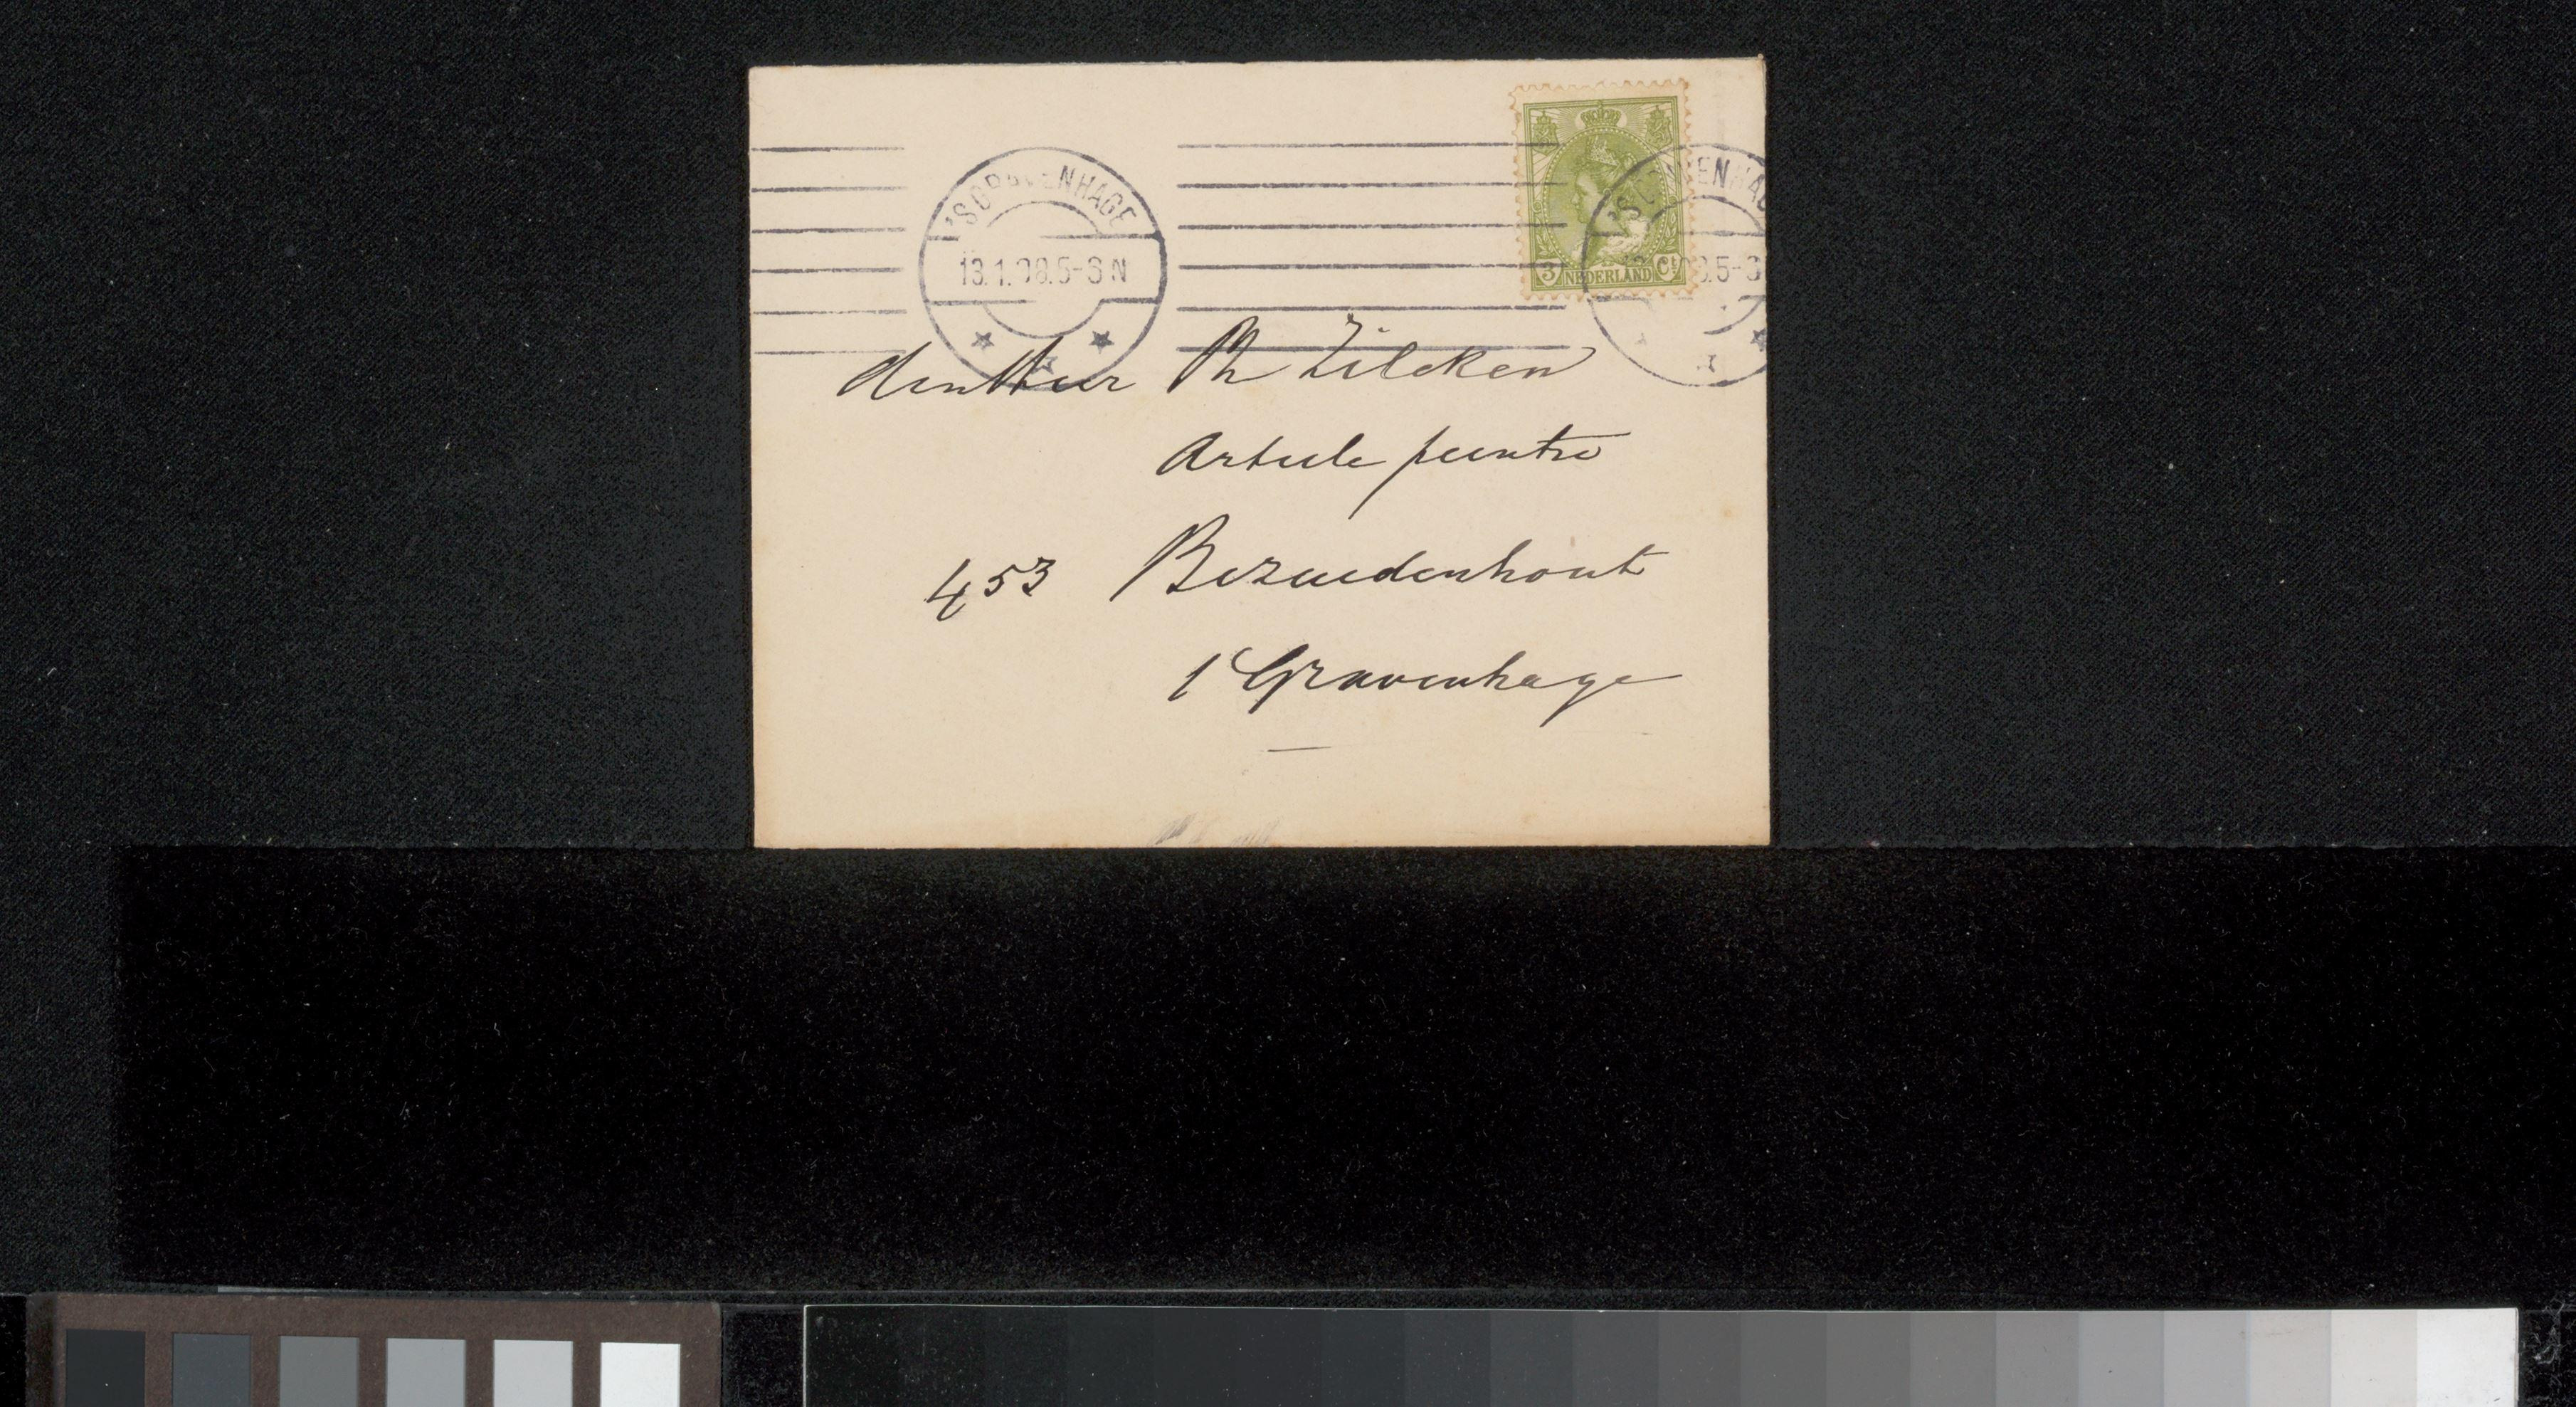 'SGRAVENHAGE
13.1.08.5-6N
3 NEDERLAND Ct
den Heer Ph Zilcken
Artiste peintre
453 Bezuidenhout
s' Gravenhage